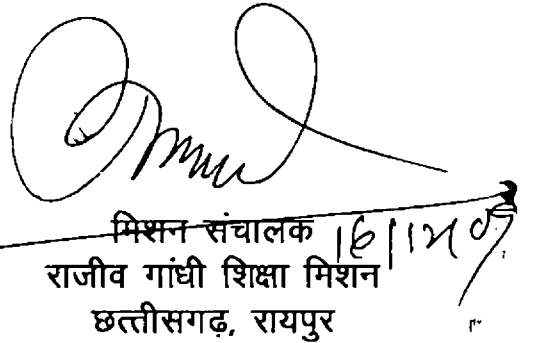 मिशन संचालक
राजीव गांधी शिक्षा मिशन
छत्तीसगढ़, रायपुर